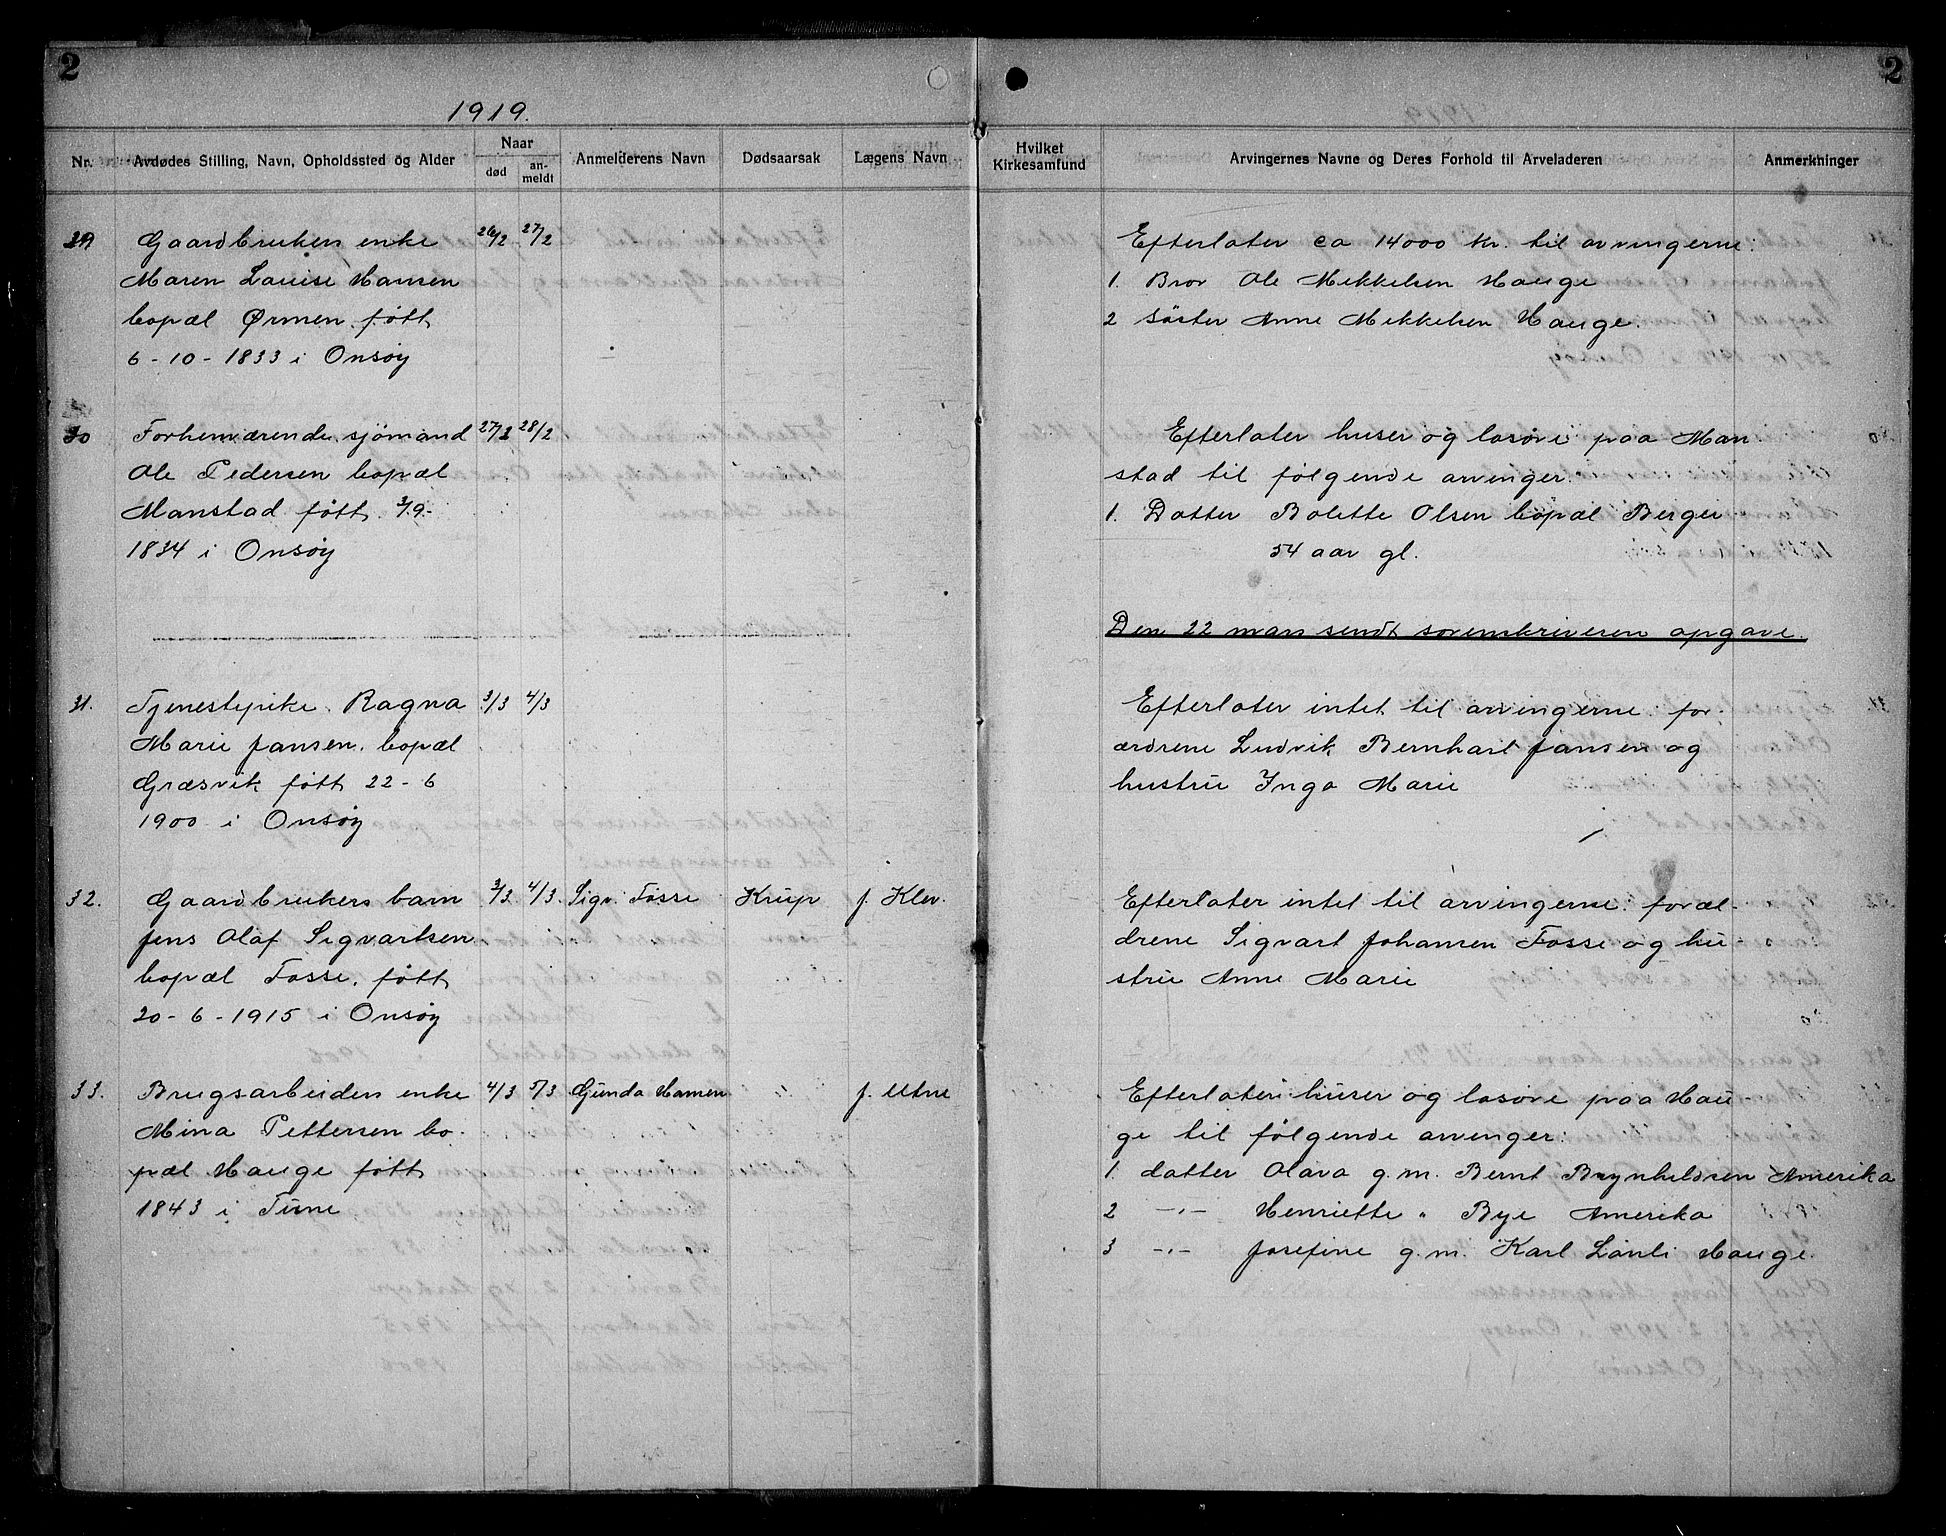 2
1919.
Nr. Avdødes Stilling, Navn, Opholdssted og Alder Naar død an-meldt Anmelderens Navn Dødsaarsak Lægens Navn
29 Gaardbrukers enke 26/2 27/2
Maren Louise Hansen
bopæl Ørmen. født
6-10-1833 i Onsøy
30 Forhenværende sjømand 27/2 28/2
Ole Pedersen bopæl
Manstad født 3/9-
1834 i Onsøy
31. Tjenestepike. Ragna 3/3 4/3
Marie Jansen. bopæl
Græsvik født 22-6
1900 i Onsøy
32. Gaardbrukers barn 3/3 4/3. Sigv. Fosse Krup f. Klev.
Jens Olaf Sigvartsen
bopæl Fosse. født
20-6-1915 i Onsøy
33. Brugsarbeiders enke 4/3 5/3 Gunda Hansen " f. Utne
Mina Pettersen bo-
pæl Hauge født
1843 i Tune
2
Hvilket Kirkesamfund Arvingernes Navne og Deres Forhold til Arveladeren Anmerkninger
Efterlater ca 14000 kr. til arvingerne:
1. Bror Ole Mikkelsen Hauge
2 søster Anne Mikkelsen Hauge.
Efterlater huser og løsøre paa Man-
stad til følgende arvinger.
1. Datter Bolette Olsen bopæl Berger
54 aar gl.
Den 22 mars sendt sorenskriveren opgave.
Efterlater intet til arvingerne. for-
ældrene Ludvik Bernhart Jansen og
hustru Inga Marie
Efterlater intet til arvingerne foræl-
drene Sigvart Johansen Fosse og hu-
stru Anne Marie
Efterlater huser og løsøre paa Hau-
ge til følgende arvinger:
1. datter Olava g.m. Bernt Brynhildsen Amerika
2 -"- Henriette " Bye Amerika
3 -"- Josefine g.m. Karl Lønli Hauge.